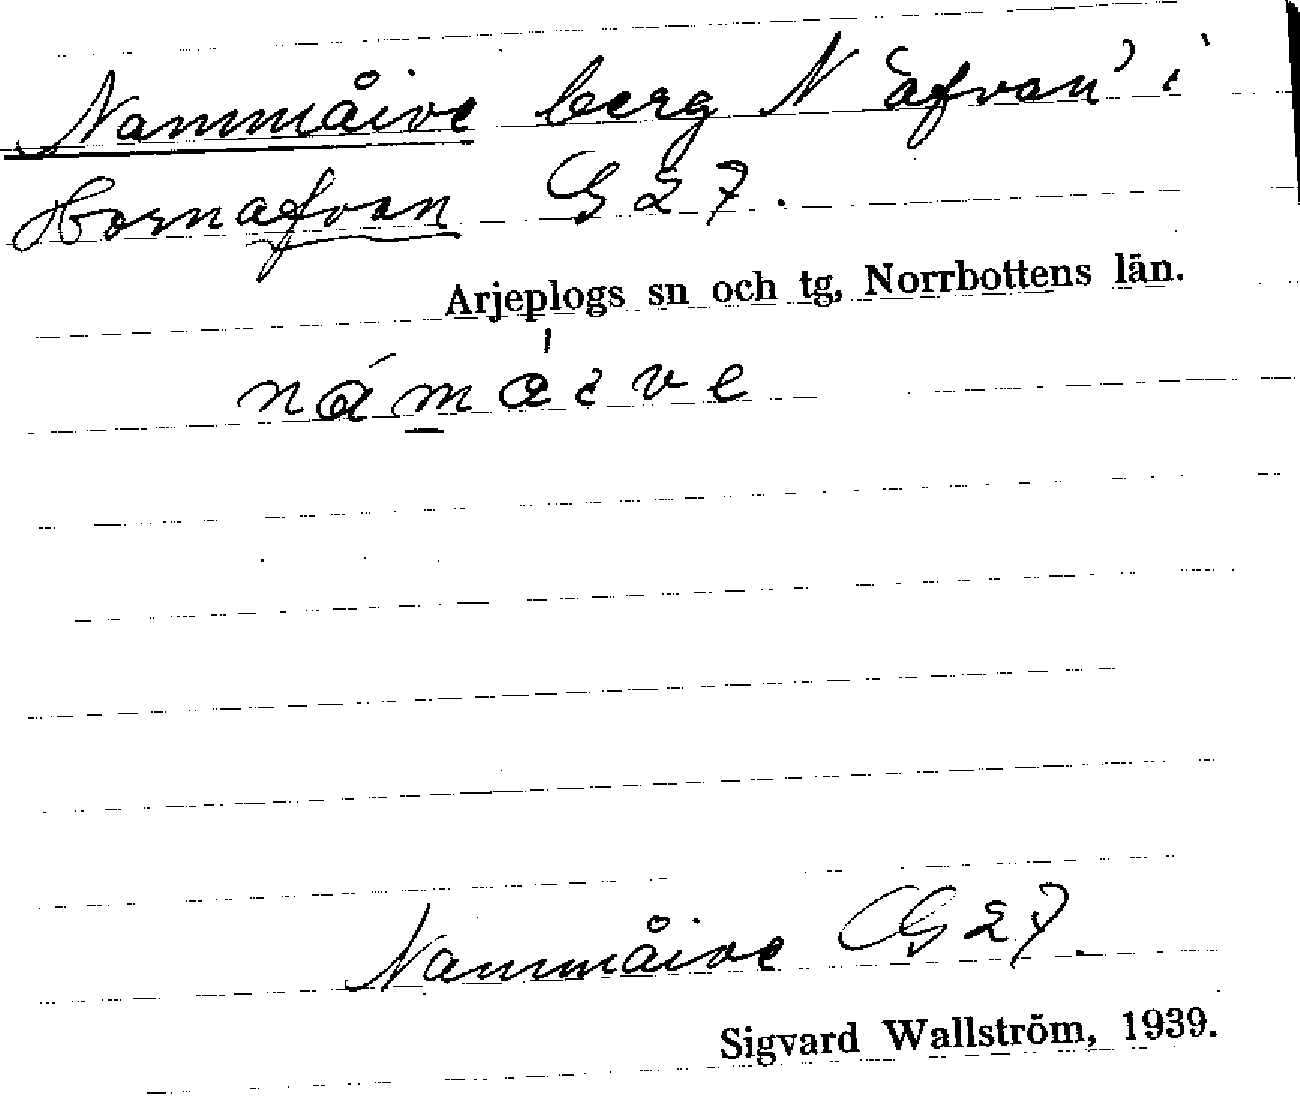 Nammåive berg N 'afvan' i
Hornafvan G 27.
Arjeplogs sn och tg, Norrbottens län.
Nammåive G 27.
Sigvard Wallström, 1939.